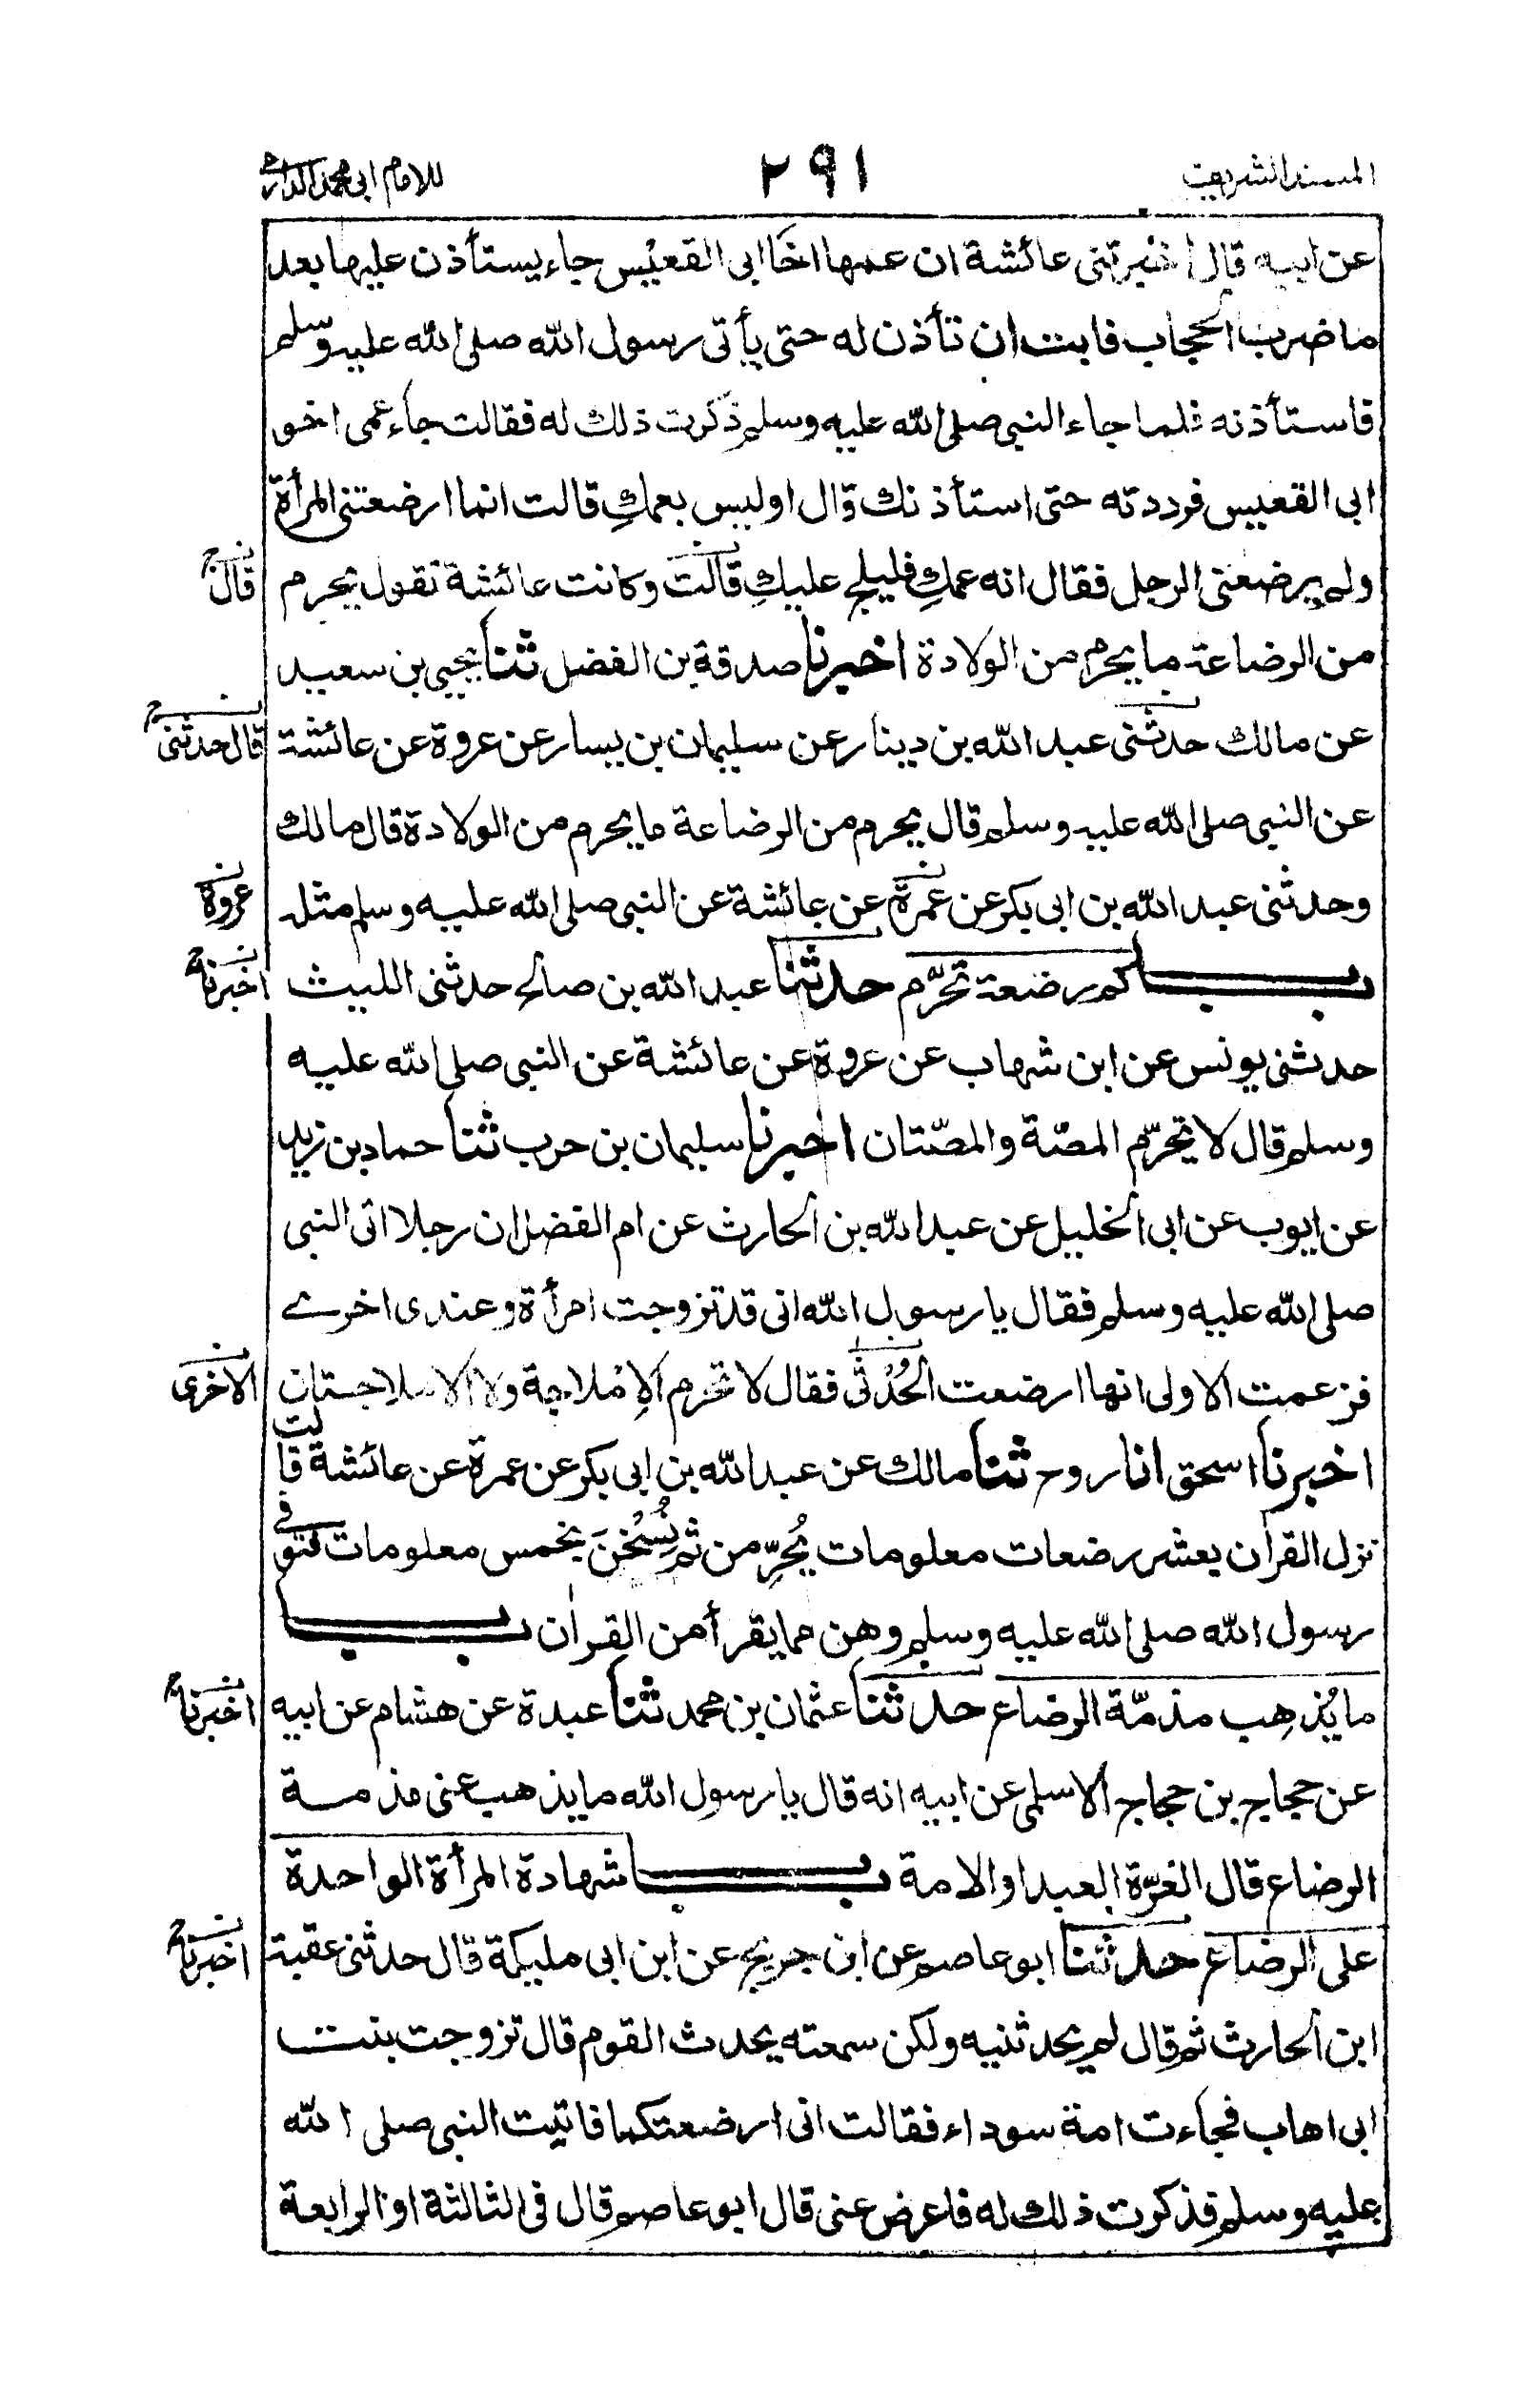 المسند الشريف
٢٩١
للامام ابى محمد الدارمى
عن ابيه قال اخبرتنى عائشة ان عمها اخَا ابى القعيْس جاء يستأذن عليها بعد
ما ضرب الحجاب فابت ان تأذن له حتى يأتى رسول الله صلى الله عليه وسلم
فاستأذنه فلما جاء النبى صلى الله عليه وسلم ذكرت ذلك له فقالت جاء عمى اخو
ابى القعيس فرددته حتى استأذنك قال اوليس بعمكِ قالت انما ارضعتنى المرأة
ولم يرضعنى الرجل فقال انه عمكِ فليلج عليكِ قالت وكانت عائشة تقول يحرم
قال
من الرضاعة ما يحرم من الولادة اخبرنا صدقة بن الفضل ثنا يحيى بن سعيد
عن مالك حدثنى عبد الله بن دينار عن سليمان بن يسار عن عروة عن عائشة
قال حدثنى
عن النبى صلى الله عليه وسلم قال يحرم من الرضاعة ما يحرم من الولادة قال مالك
وحدثنى عبد الله بن ابى بكر عن عمرة عن عائشة عن النبى صلى الله عليه وسلم مثله
عروة
باب كم رضعة تحرّم حدثنا عبد الله بن صالح حدثنى الليث
اخبرنا
حدثنى يونس عن ابن شهاب عن عروة عن عائشة عن النبى صلى الله عليه
وسلم قال لا تحرّم المصّة والمصّتان اخبرنا سليمان بن حرب ثنا حماد بن زيد
عن ايوب عن ابى الخليل عن عبد الله بن الحارث عن ام الفضل ان رجلا اتى النبى
صلى الله عليه وسلم فقال يا رسول الله انى قد تزوجت امرأة وعندى اخرے
فزعمت الاولى انها ارضعت الحُدْثٰى فقال لا تحرم الاِمْلاجة ولا الاملاجتان
الاخرى
اخبرنا اسحق انا روح ثنا مالك عن عبد الله بن ابى بكر عن عمرة عن عائشة قالت
نزل القرآن بعشر رضعات معلومات يُحرِّمن ثم نُسِخْنَ بخمس معلومات فتوفى
رسول الله صلى الله عليه وسلم وهن مما يقرأ من القرآن باب
ما يُذهِب مذمّة الرضاع حدثنا عثمان بن محمد ثنا عبدة عن هشام عن ابيه
اخبرنا
عن حجاج بن حجاج الاسلمى عن ابيه انه قال يا رسول الله ما يذهب عنى مذمة
الرضاع قال الغرّة العبد او الامة باب شهادة المرأة الواحدة
على الرضاع حدثنا ابو عاصم عن ابن جريج عن ابن ابى مليكة قال حدثنى عقبة
اخبرنا
ابن الحارث ثم قال لم يحدثنيه ولكن سمعته يحدث القوم قال تزوجت بنت
ابى اهاب فجاءت امة سوداء فقالت انى ارضعتكما فاتيت النبى صلى الله
عليه وسلم فذكرت ذلك له فاعرض عنى قال ابو عاصم قال فى الثالثة او الرابعة